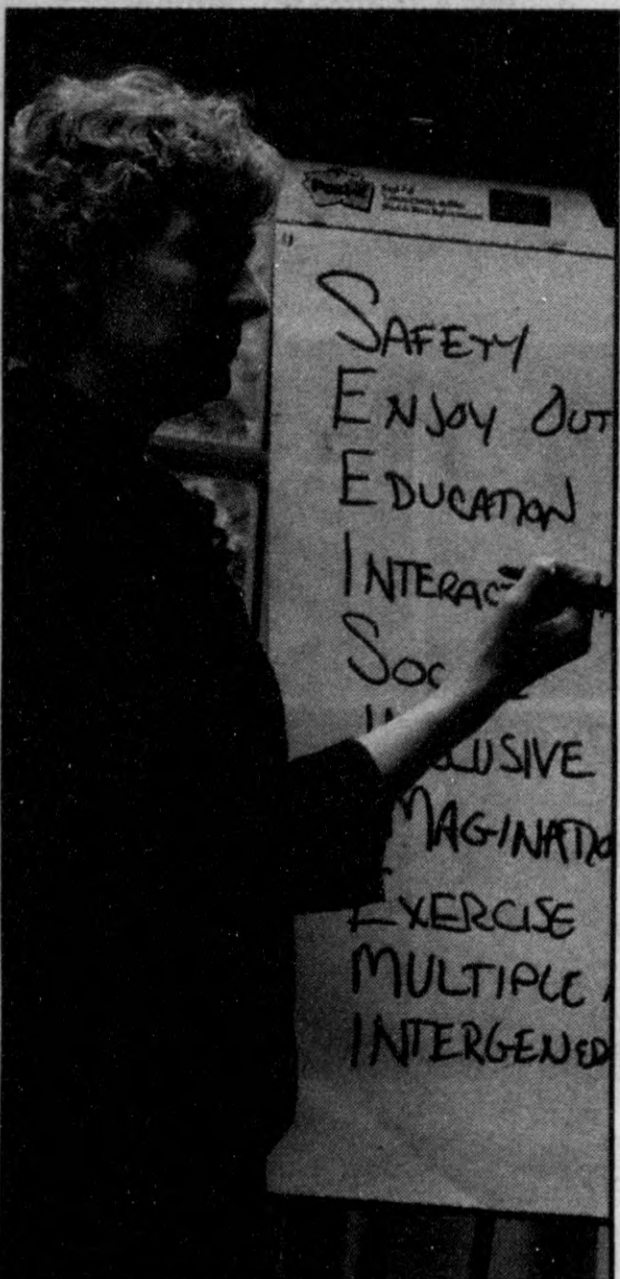 Post-it
SAFETY
ENJOY OUT
EDUCATION
INTERAC
SOC
CLUSIVE
MAGINATIO
EXERCISE
MULTIPLE
INTERGENE